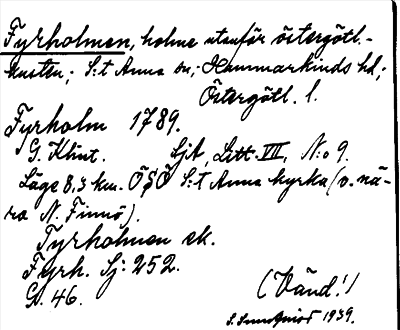 Fyrholmen, holme utanför östergötl.-
kusten; S:t Anna sn; Hammarkinds hd;
Östergötl. l.
Fyrholm 1789.
G. Klint. SjA, Litt. VII, N:o 9.
Läge 8,3 km. ÖSÖ S:t Anna kyrka (v. nä-
ra N. Finnö).
Fyrholmen ek.
Fyrh. Sj: 252.
G. 46.
(Vänd!)
S. Sundqvist 1939.